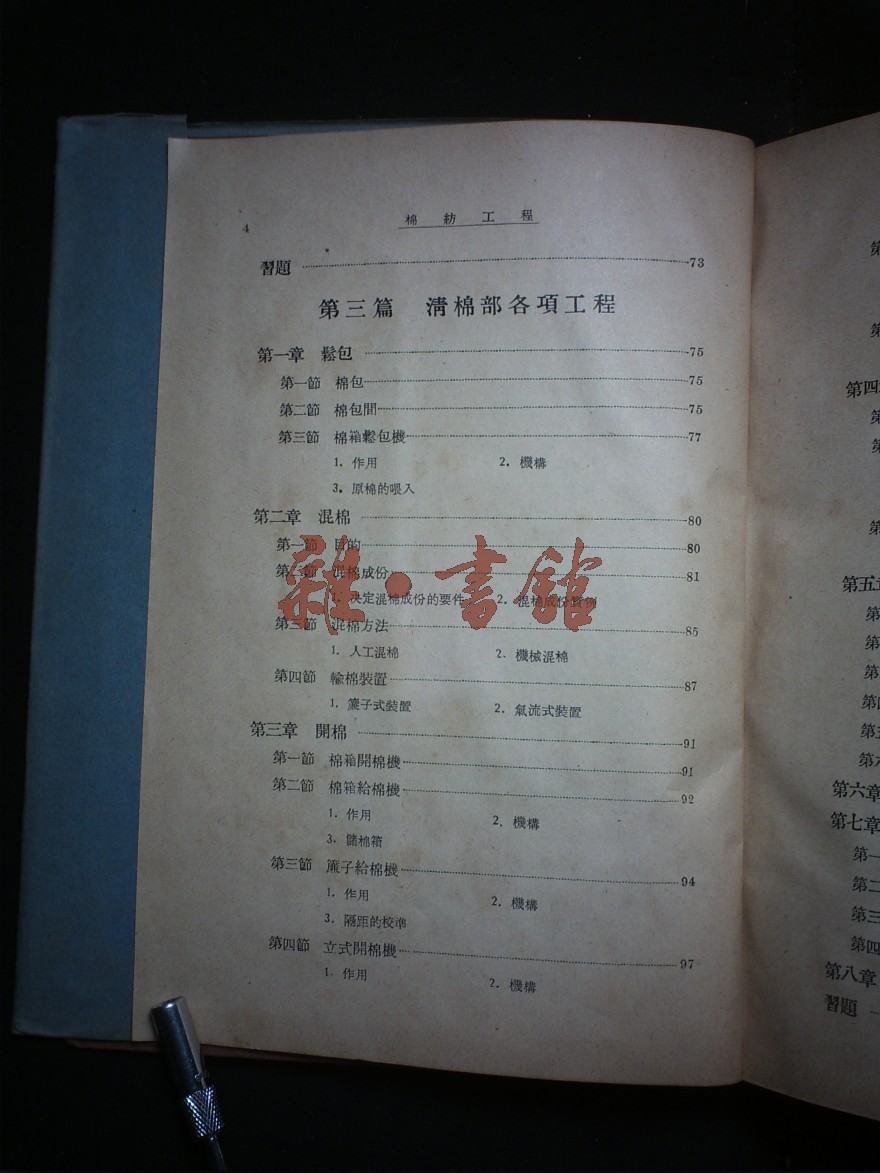 4
棉紡工程
習題 73
第三篇 淸棉部各項工程
第一章 鬆包 75
第一節 棉包 75
第二節 棉包間 75
第三節 棉箱鬆包機 77
1. 作用 2. 機構
3. 原棉的喂入
第二章 混棉 80
第一節 目的 80
第二節 混棉成份 81
1. 決定混棉成份的要件 2. 混棉成份實例
第三節 混棉方法 85
1. 人工混棉 2. 機械混棉
第四節 輸棉裝置 87
1. 簾子式裝置 2. 氣流式裝置
第三章 開棉 91
第一節 棉箱開棉機 91
第二節 棉箱給棉機 92
1. 作用 2. 機構
3. 儲棉箱
第三節 簾子給棉機 94
1. 作用 2. 機構
3. 隔距的校準
第四節 立式開棉機 97
1. 作用 2. 機構
雜·書館
第四
第五章
第六章
第七章
第一
第二
第三
第四
第八章
習題